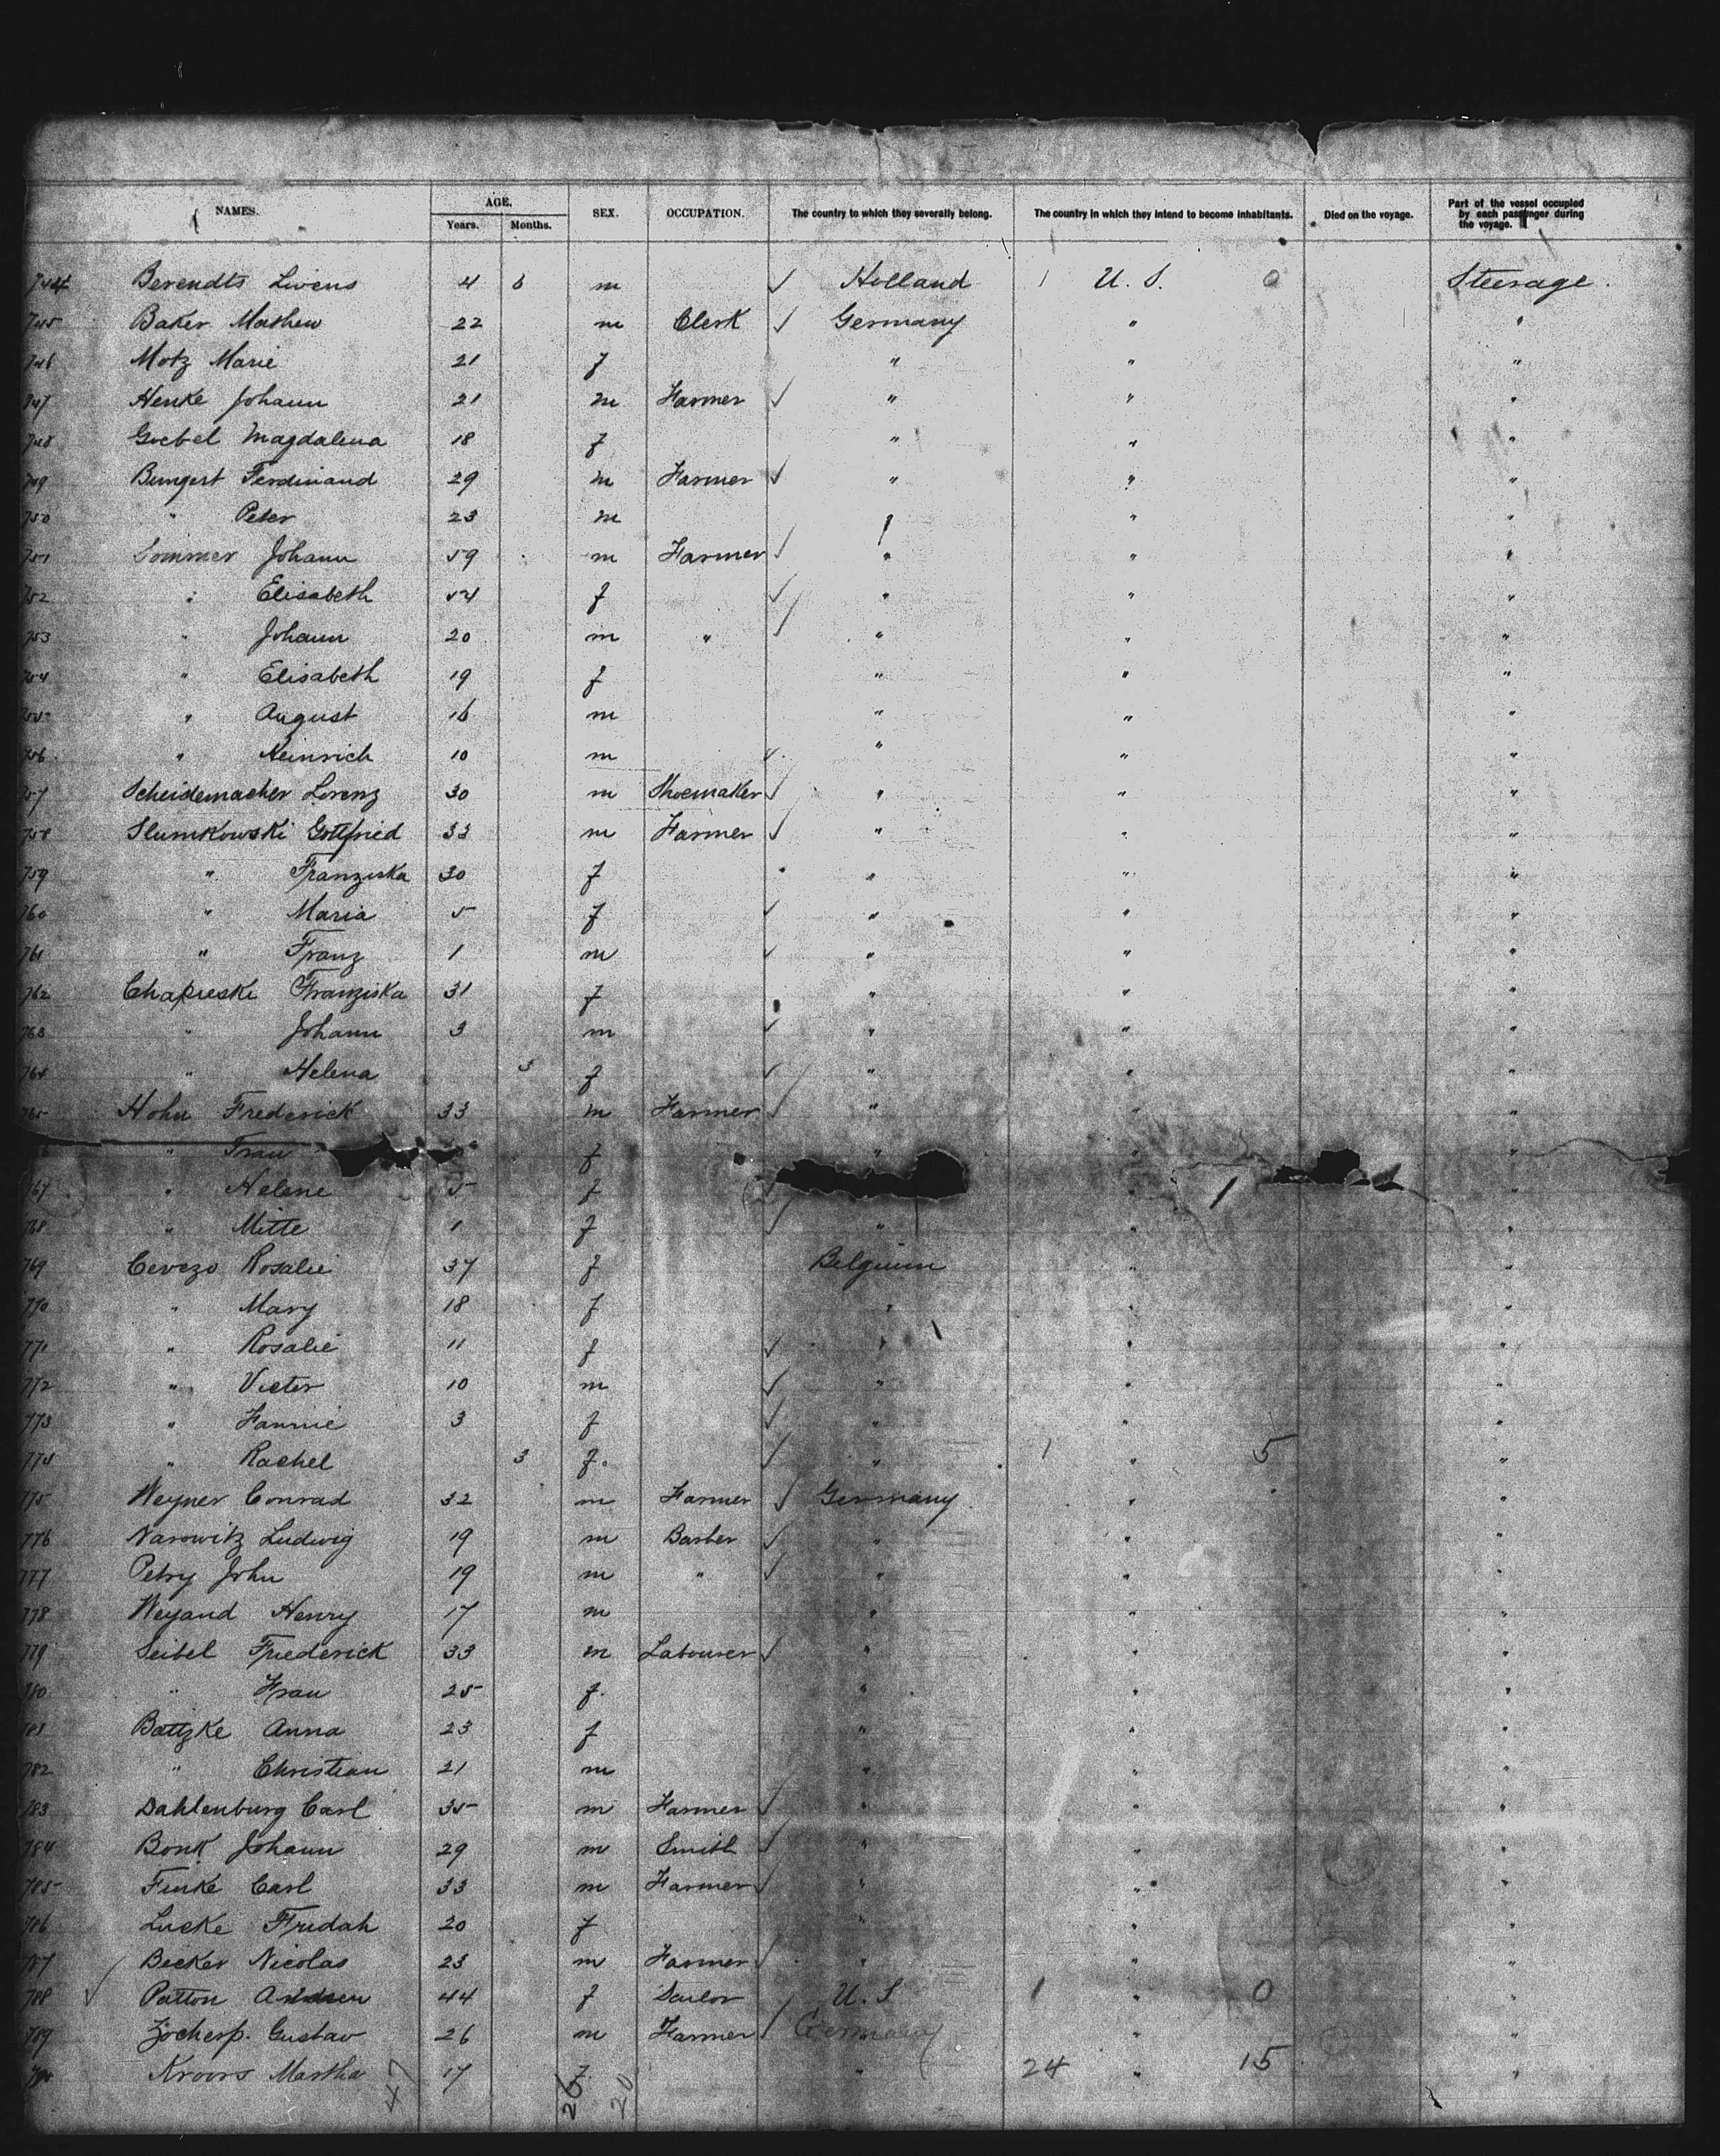 NAMES. AGE. SEX. OCCUPATION. The country to which they severally belong. The country in which they intend to become inhabitants. Died on the voyage. Part of the vessel occupied by each passenger during the voyage.
Years. Months.
744 Berendts Livens 4 6 m Holland 1 U. S. 0 Steerage.
745 Baker Mathew 22 m Clerk Germany " "
746 Motz Marie 21 f " " "
747 Henke Johann 21 m Farmer " " "
748 Goebel Magdalena 18 f " " "
749 Bungert Ferdinand 29 m Farmer " " "
750 " Peter 23 m " "
751 Sommer Johann 59 m Farmer " " "
752 " Elisabeth 54 f " " "
753 " Johann 20 m " " " "
754 " Elisabeth 19 f " " "
755 " August 16 m " " "
756 " Heinrich 10 m " " "
757 Scheidemacher Lorenz 30 m Shoemaker " " "
758 Slumkowski Gottfried 33 m Farmer " " "
759 " Franziska 30 f " " "
760 " Maria 5 f " " "
761 " Franz 1 m " " "
762 Chapieski Franziska 31 f " " "
763 " Johann 3 m " " "
764 " Helena 3 f " " "
765 Hohn Frederick 33 m Farmer " " "
" Frau f " " "
767 " Helene 5 f " "
768 " Mitte 1 f " " "
769 Cerezo Rosalie 37 f Belgium " "
770 " Mary 18 f " " "
771 " Rosalie 11 f " " "
772 " Victor 10 m " " "
773 " Fannie 3 f " " "
774 " Rachel 3 f. " 1 " 5 "
775 Weyner Conrad 32 m Farmer Germany " "
776 Narowitz Ludwig 19 m Barber " " "
777 Petry John 19 m " " " "
778 Weyand Henry 17 m " " "
779 Seibel Frederick 33 m Labourer " " "
780 " Frau 25 f. " " "
781 Battzke Anna 23 f " " "
782 " Christian 21 m " " "
783 Dahlenburg Carl 35 m Farmer " " "
784 Bonk Johann 29 m Smith " " "
785 Finke Carl 33 m Farmer " " "
786 Lucke Fridah 20 f " "
787 Becker Nicolas 23 m Farmer " " "
788 Patton 44 f U. S 1 " 0 "
789 Gustav 26 m Farmer Germany " "
790 Kroors Martha 17 f " 24 " 15 "
47 26 20